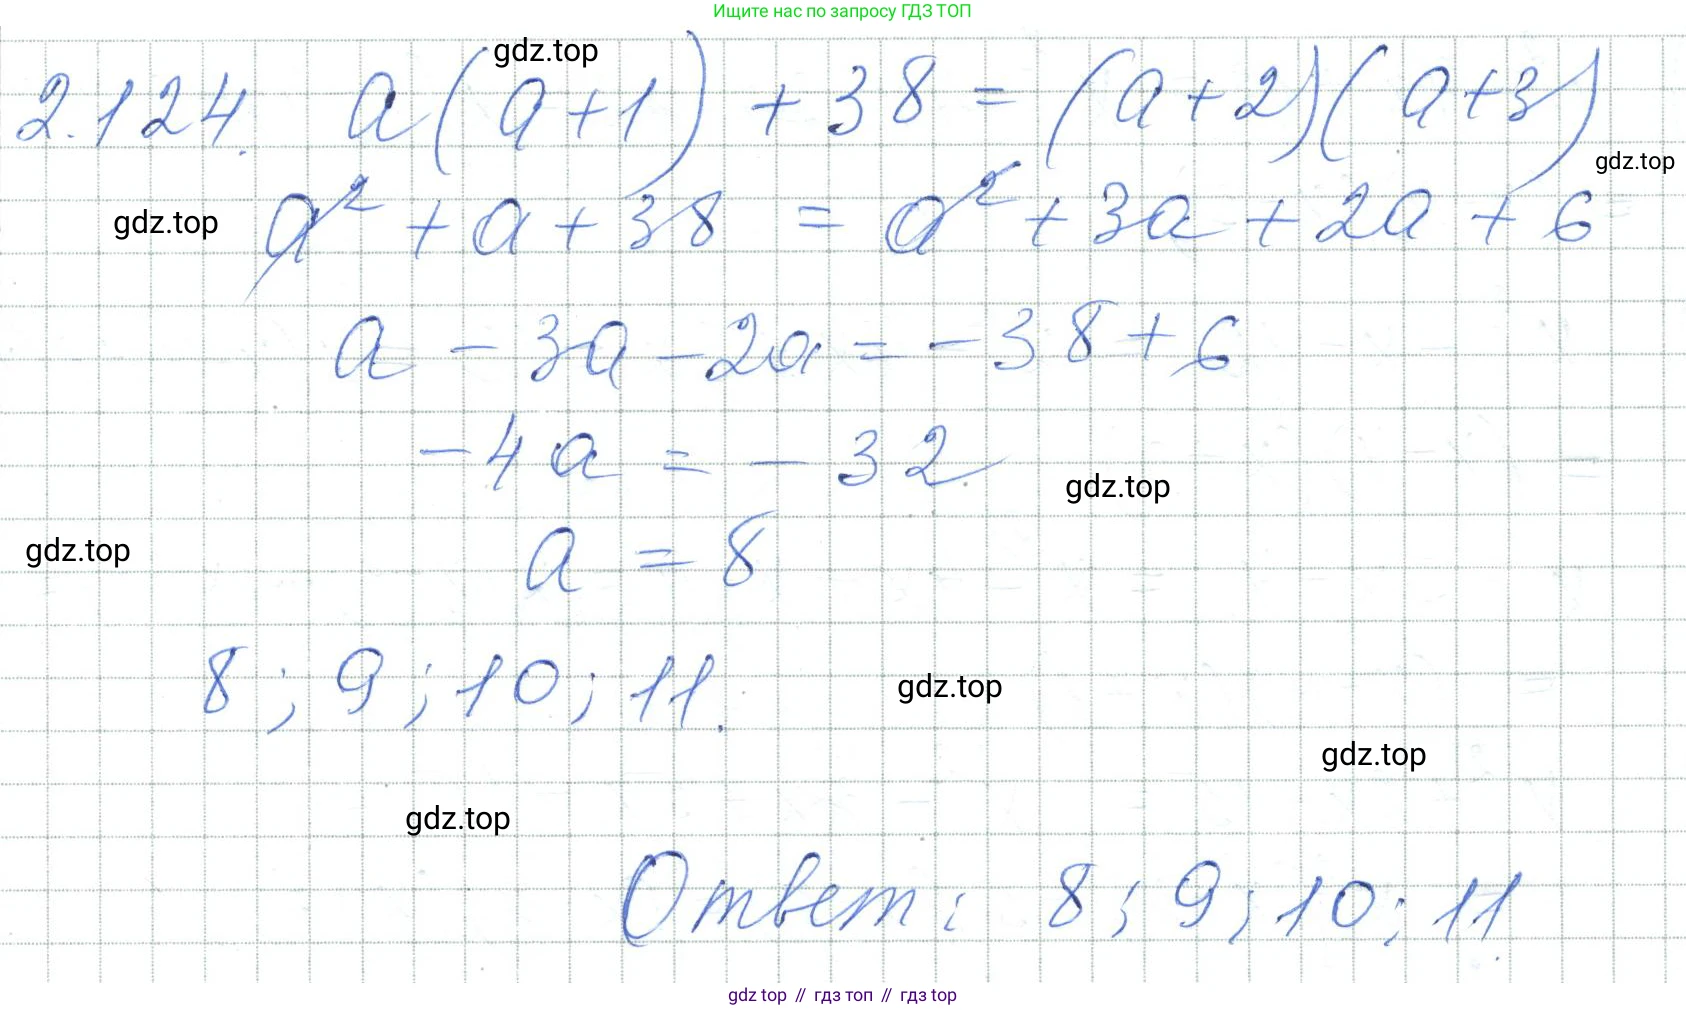 Ищите нас по запросу ГДЗ ТОП
gdz.top
2.124. a(a+1)+38=(a+2)(a+3)
gdz.top
gdz.top
a²+a+38=a²+3a+2a+6
a-3a-2a=-38+6
-4a=-32
gdz.top
gdz.top
a=8
8; 9; 10; 11.
gdz.top
gdz.top
gdz.top
Ответ: 8; 9; 10; 11
gdz top // гдз топ // гдз top